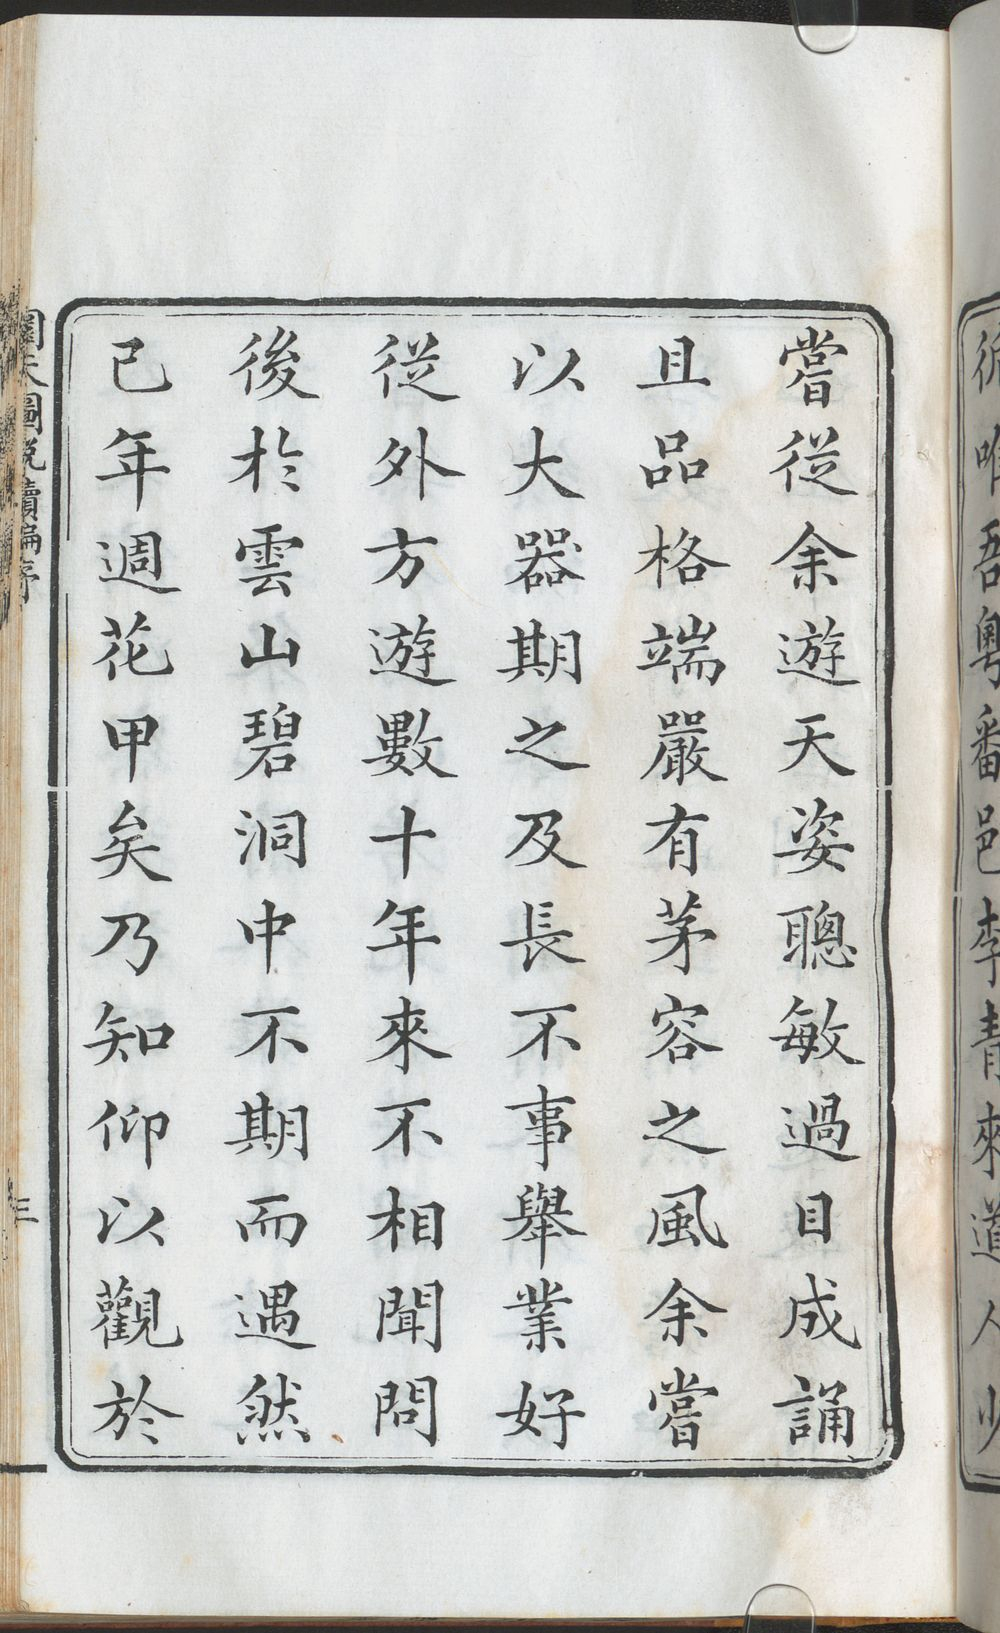 衎唯吾粵番邑李青來道人少
嘗從余遊天姿聰敏過目成誦
且品格端嚴有茅容之風余嘗
以大器期之及長不事舉業好
從外方遊數十年來不相聞問
後於雲山碧洞中不期而遇然
已年週花甲矣乃知仰以觀於
圜天圖說續編序
三